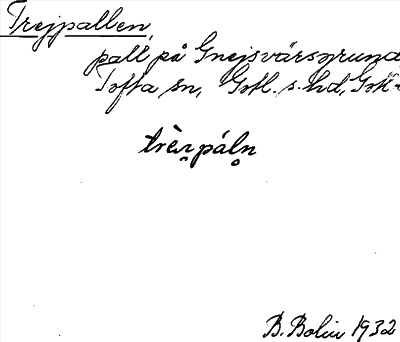 Trejpallen,
pall på Gnejsvärsgrund
Tofta sn, Gotl. s. hd, Gotl.
trèi̯páln̥
B. Bolin 1932